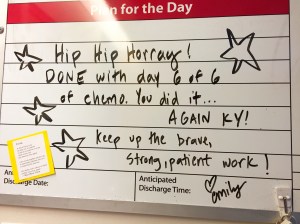 Plan for the Day
Hip Hip Horray!
DONE with day 6 of 6
of chemo. You did it...
AGAIN KY!
Keep up the brave,
strong, patient work!
Discharge Date:
Anticipated
Discharge Time:
Emily